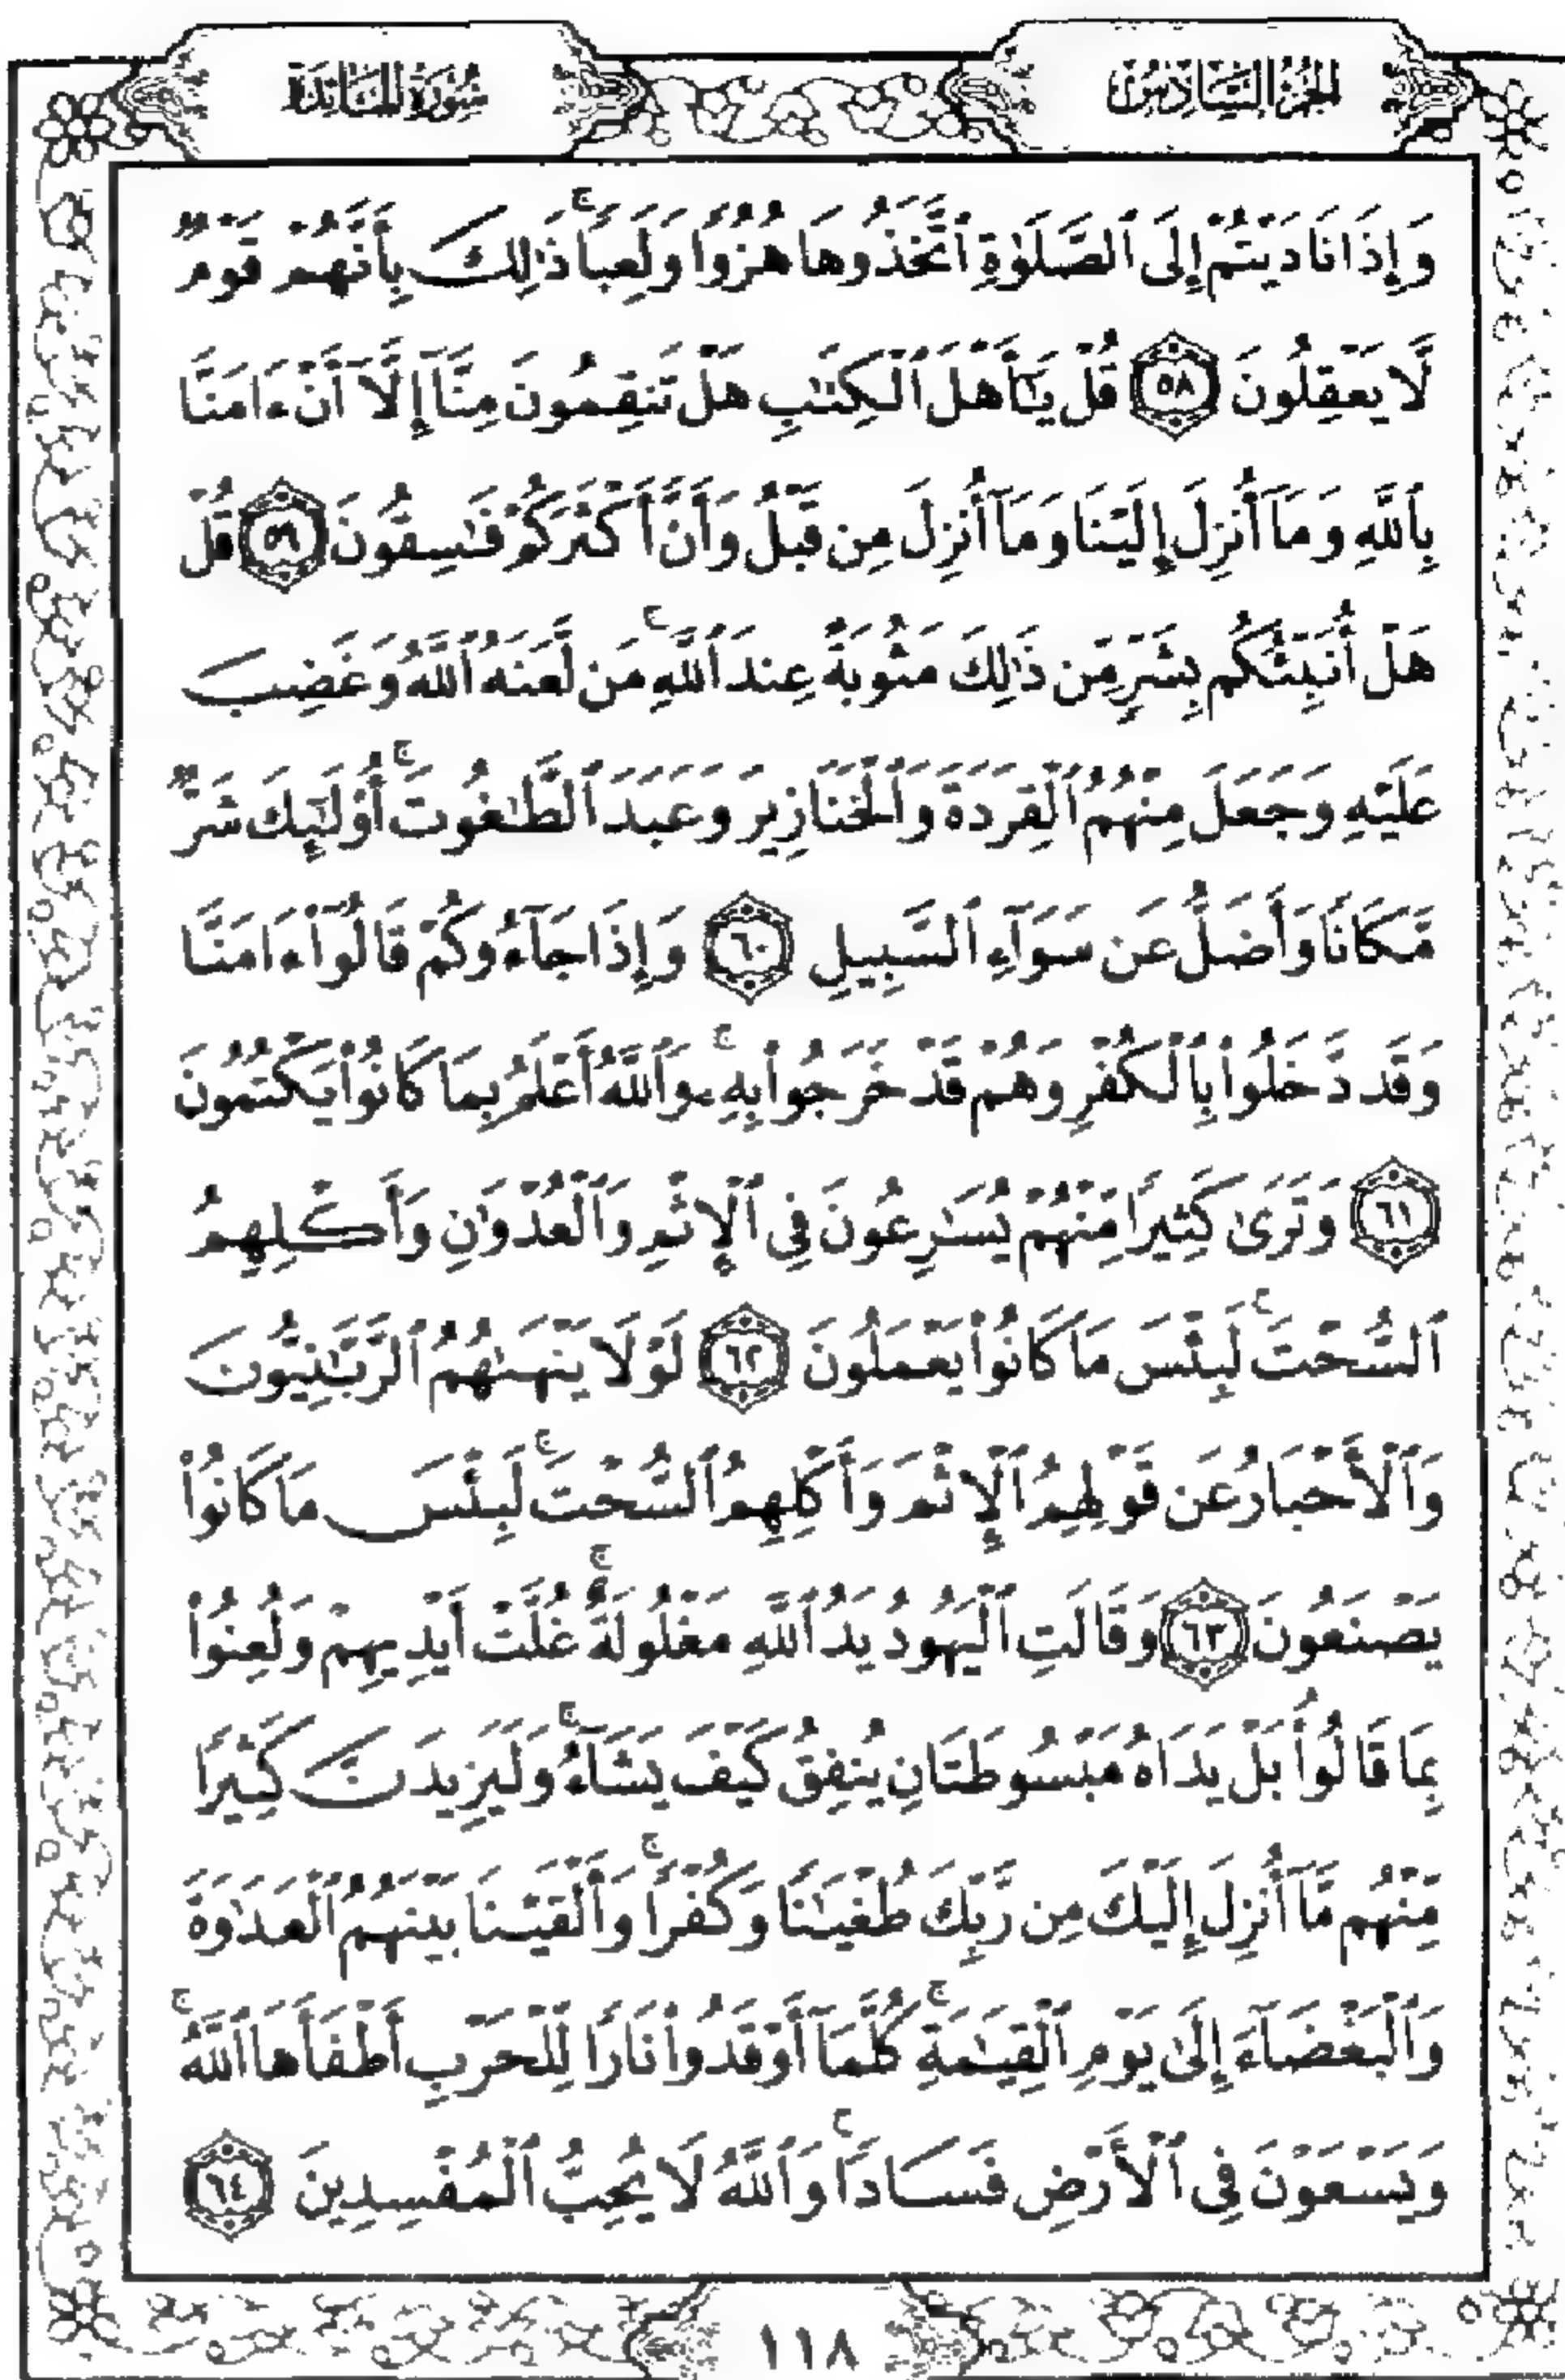 الجزء السادس
سورة المائدة
وَإِذَا نَادَيْتُمْ إِلَى ٱلصَّلَوٰةِ ٱتَّخَذُوهَا هُزُوًا وَلَعِبًا ۚ ذَٰلِكَ بِأَنَّهُمْ قَوْمٌ
لَّا يَعْقِلُونَ ٥٨ قُلْ يَٰٓأَهْلَ ٱلْكِتَٰبِ هَلْ تَنقِمُونَ مِنَّآ إِلَّآ أَنْ ءَامَنَّا
بِٱللَّهِ وَمَآ أُنزِلَ إِلَيْنَا وَمَآ أُنزِلَ مِن قَبْلُ وَأَنَّ أَكْثَرَكُمْ فَٰسِقُونَ ٥٩ قُلْ
هَلْ أُنَبِّئُكُم بِشَرٍّ مِّن ذَٰلِكَ مَثُوبَةً عِندَ ٱللَّهِ ۚ مَن لَّعَنَهُ ٱللَّهُ وَغَضِبَ
عَلَيْهِ وَجَعَلَ مِنْهُمُ ٱلْقِرَدَةَ وَٱلْخَنَازِيرَ وَعَبَدَ ٱلطَّٰغُوتَ ۚ أُو۟لَٰٓئِكَ شَرٌّ
مَّكَانًا وَأَضَلُّ عَن سَوَآءِ ٱلسَّبِيلِ ٦٠ وَإِذَا جَآءُوكُمْ قَالُوٓا۟ ءَامَنَّا
وَقَد دَّخَلُوا۟ بِٱلْكُفْرِ وَهُمْ قَدْ خَرَجُوا۟ بِهِۦ ۚ وَٱللَّهُ أَعْلَمُ بِمَا كَانُوا۟ يَكْتُمُونَ
٦١ وَتَرَىٰ كَثِيرًا مِّنْهُمْ يُسَٰرِعُونَ فِى ٱلْإِثْمِ وَٱلْعُدْوَٰنِ وَأَكْلِهِمُ
ٱلسُّحْتَ ۚ لَبِئْسَ مَا كَانُوا۟ يَعْمَلُونَ ٦٢ لَوْلَا يَنْهَىٰهُمُ ٱلرَّبَّٰنِيُّونَ
وَٱلْأَحْبَارُ عَن قَوْلِهِمُ ٱلْإِثْمَ وَأَكْلِهِمُ ٱلسُّحْتَ ۚ لَبِئْسَ مَا كَانُوا۟
يَصْنَعُونَ ٦٣ وَقَالَتِ ٱلْيَهُودُ يَدُ ٱللَّهِ مَغْلُولَةٌ ۚ غُلَّتْ أَيْدِيهِمْ وَلُعِنُوا۟
بِمَا قَالُوا۟ بَلْ يَدَاهُ مَبْسُوطَتَانِ يُنفِقُ كَيْفَ يَشَآءُ ۚ وَلَيَزِيدَنَّ كَثِيرًا
مِّنْهُم مَّآ أُنزِلَ إِلَيْكَ مِن رَّبِّكَ طُغْيَٰنًا وَكُفْرًا ۚ وَأَلْقَيْنَا بَيْنَهُمُ ٱلْعَدَٰوَةَ
وَٱلْبَغْضَآءَ إِلَىٰ يَوْمِ ٱلْقِيَٰمَةِ ۚ كُلَّمَآ أَوْقَدُوا۟ نَارًا لِّلْحَرْبِ أَطْفَأَهَا ٱللَّهُ ۚ
وَيَسْعَوْنَ فِى ٱلْأَرْضِ فَسَادًا ۚ وَٱللَّهُ لَا يُحِبُّ ٱلْمُفْسِدِينَ ٦٤
١١٨